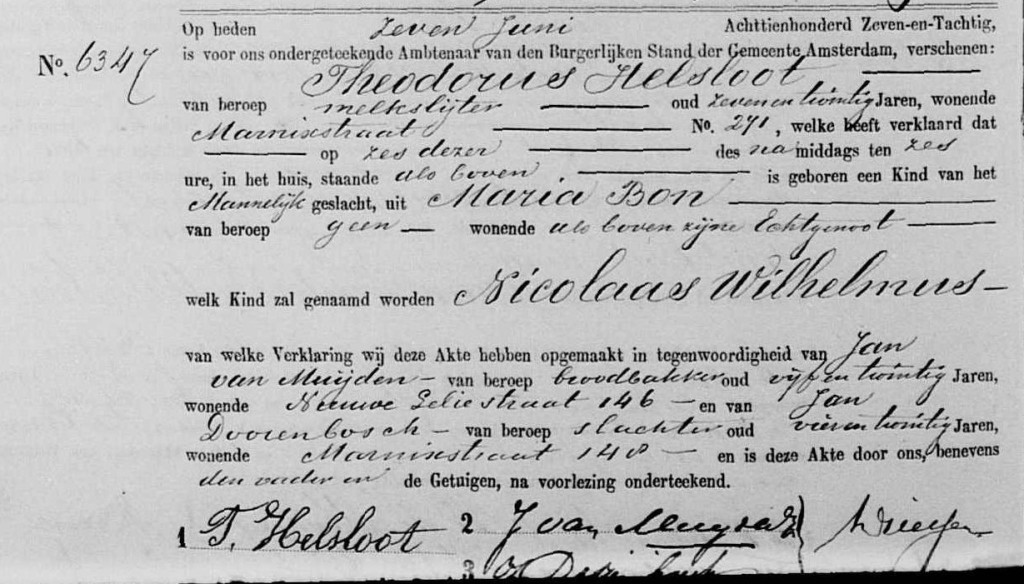 Op heden zeven Juni Achttienhonderd Zeven-en-Tachtig,
No. 6347 is voor ons ondergeteekende Ambtenaar van den Burgerlijken Stand der Gemeente Amsterdam, verschenen:
Theodorus Helsloot
van beroep melkslijter oud zeven en twintig Jaren, wonende
Marnixstraat No. 271, welke heeft verklaard dat
op zes dezer des namiddags ten zes
ure, in het huis, staande als boven is geboren een Kind van het
Mannelijk geslacht, uit Maria Bon
van beroep geen wonende als boven zijne Echtgenoot
welk Kind zal genaamd worden Nicolaas Wilhelmus
van welke Verklaring wij deze Akte hebben opgemaakt in tegenwoordigheid van Jan
van Muijden van beroep broodbakker oud vijf en twintig Jaren,
wonende Nieuwe Leliestraat 146 en van Jan
Doorenbosch van beroep slachter oud vier en twintig Jaren,
wonende Marnixstraat 148 en is deze Akte door ons, benevens
den vader en de Getuigen, na voorlezing onderteekend.
1 T. Helsloot 2 J van
3